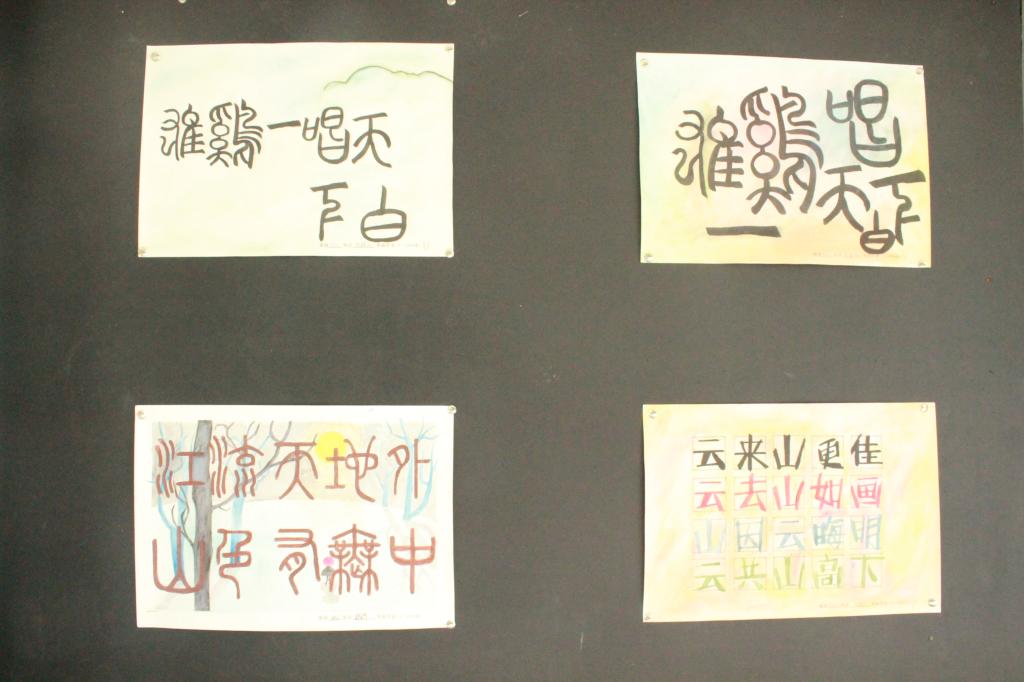 雄鷄一唱天
下白
雄鷄一唱
天下白
江流天地外
山色有無中
云来山更佳
云去山如画
山因云晦明
云共山高下